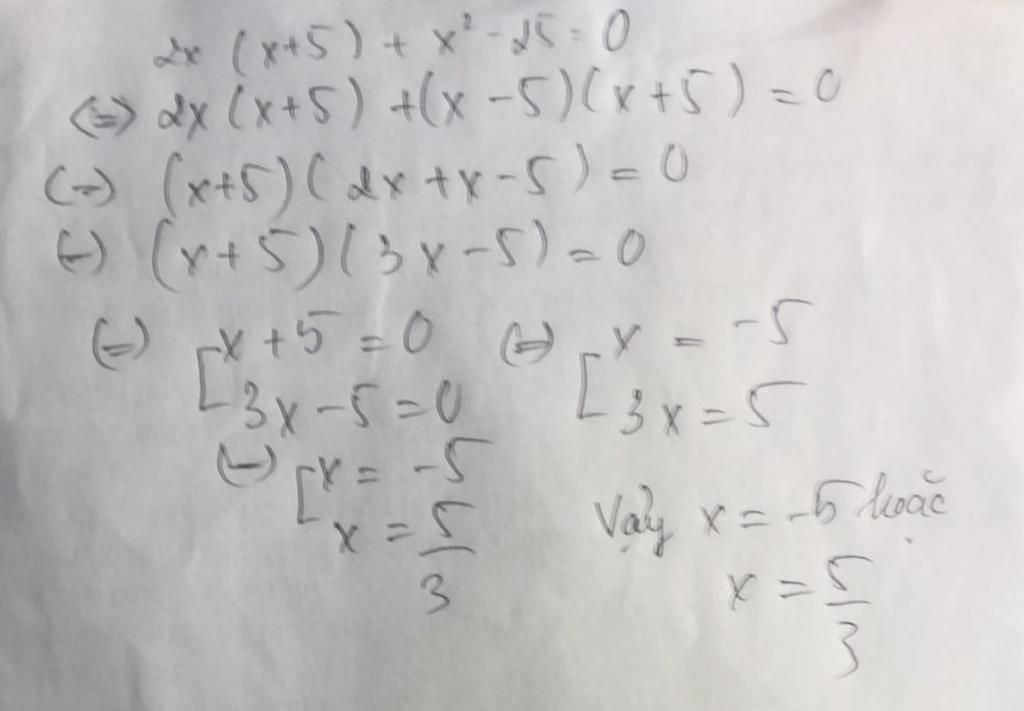 2x (x+5) + x² - 25 = 0
(=) 2x (x+5) + (x - 5)(x + 5) = 0
(=) (x+5)( 2x + x - 5 ) = 0
(=) (x + 5)( 3x - 5) = 0
(=) [ x + 5 = 0 (=) [ x = -5
3x - 5 = 0 3x = 5
(=) [ x = -5
x = 5/3
Vậy x = -5 hoặc
x = 5/3